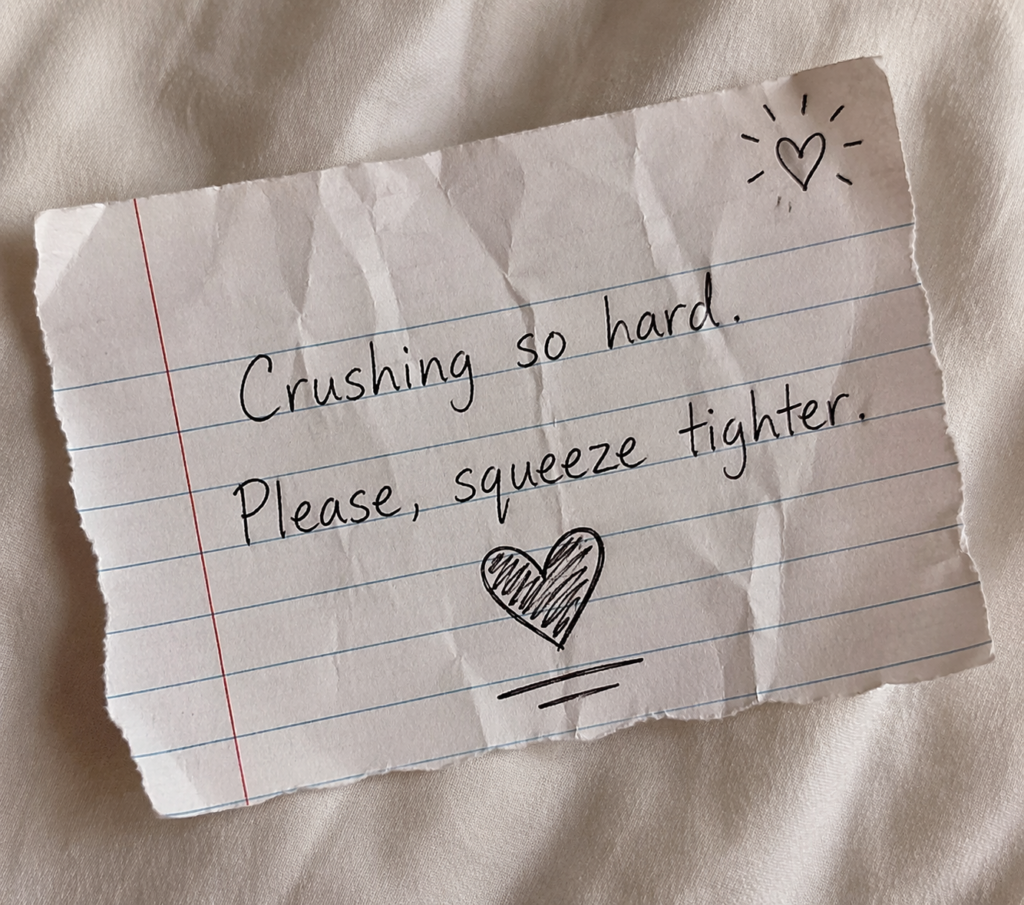 Crushing so hard.
Please, squeeze tighter.